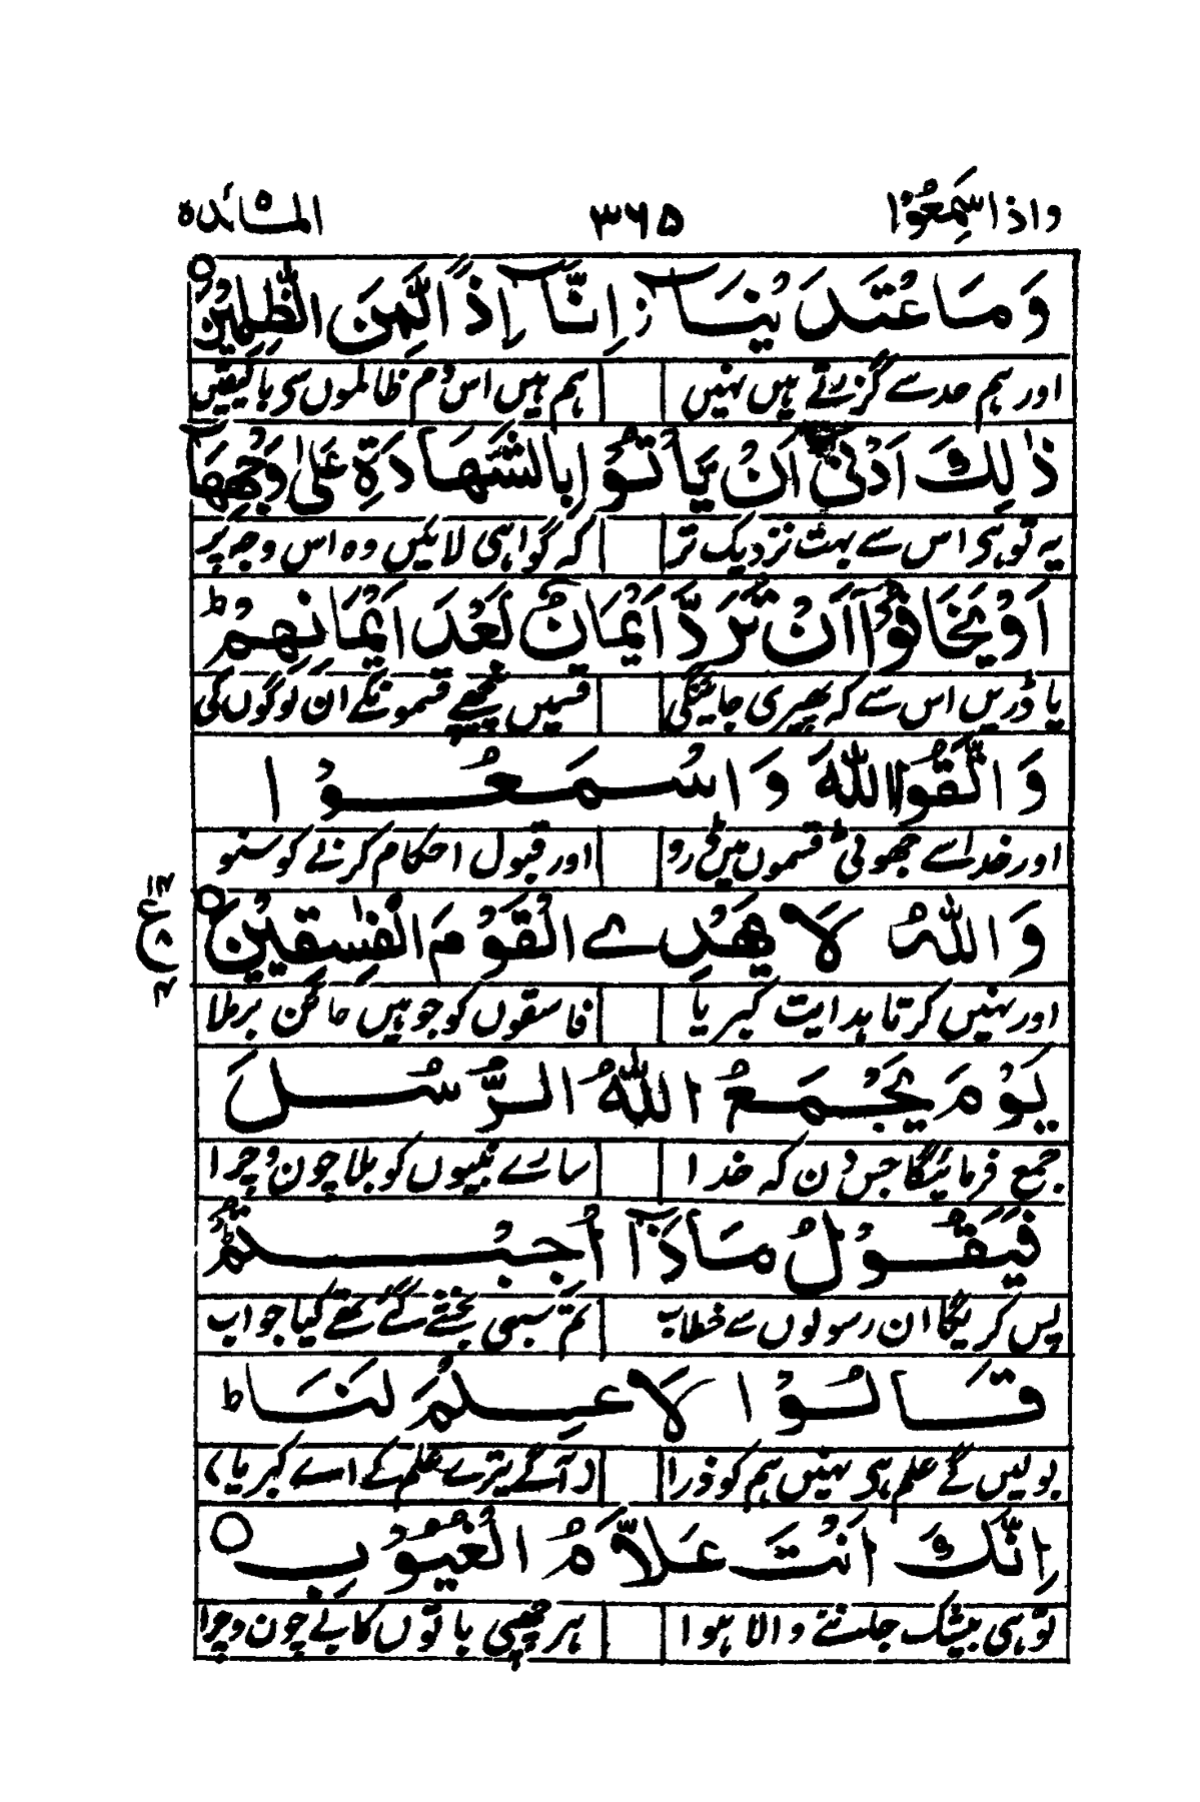 واذا سَمِعُوْا ٣٦٥ المَائدہ ۵
وَمَا عْتَدَ يْنَآ ز اِنَّآ اِذًا لَّمِنَ الظّٰلِمِيْنَ ○
اور ہم حد سے گزرتے ہیں نہیں ہم ہیں اس دم ظالموں سی بالیقیں
ذٰلِكَ اَدْنٰٓى اَنْ يَّاْتُوْا بِالشَّهَادَةِ عَلٰى وَجْهِهَآ
یہ تو ہی اس سے بہت نزدیک تر کہ گواہی لائیں وہ اس وجہ پر
اَوْ يَخَافُوْٓا اَنْ تُرَدَّ اَيْمَانٌۢ بَعْدَ اَيْمَانِهِمْ ط
یا ڈریں اس سے کہ پھیری جائینگی قسمیں پیچھے قسمونکے ان لوگوں کی
وَ اتَّقُوا اللّٰهَ وَ اسْمَعُوْا
اور خدا سے جھوٹی قسموں میں ڈرو اور قبول احکام کرنے کو سنو
وَ اللّٰهُ لَا يَهْدِے الْقَوْمَ الْفٰسِقِيْنَ ○
١٤ ع ٨ ٤
اور نہیں کرتا ہدایت کبریا فاسقوں کو جو ہیں خائن برملا
يَوْمَ يَجْمَعُ اللّٰهُ الرُّسُلَ
جمع فرمائیگا جس دن کہ خدا سارے نبیوں کو بلا چون و چرا
فَيَقُوْلُ مَاذَآ اُجِبْتُمْ ط
پس کریگا ان رسولوں سے خطاب تم سبھی بخشے گئے تھے کیا جواب
قَالُوْا لَا عِلْمَ لَنَا ط
بولیں گے علم ہی نہیں ہم کو ذرا (آگے تیرے علم کے اے کبریا)
اِنَّكَ اَنْتَ عَلَّامُ الْغُيُوْبِ ○
تو ہی بیشک جاننے والا ہوا ہر چھپی باتوں کا بے چون و چرا